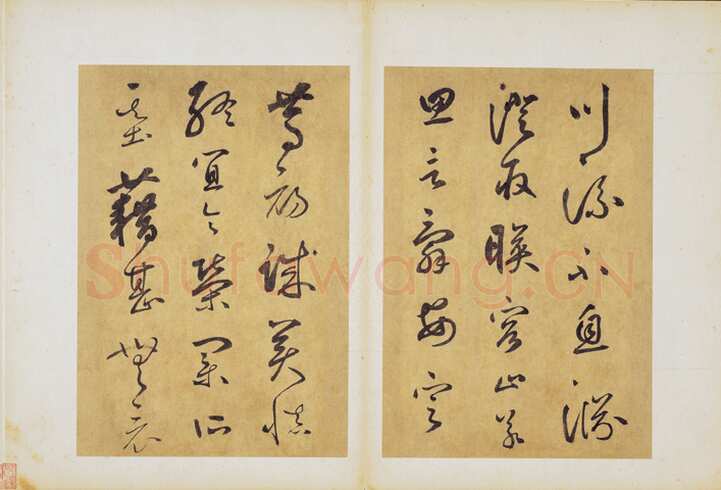 川流不息淵
澄取暎容止若
思言辭安定
篤初誠美慎
終宜令榮業所
基藉甚無竟
Shufawang.CN